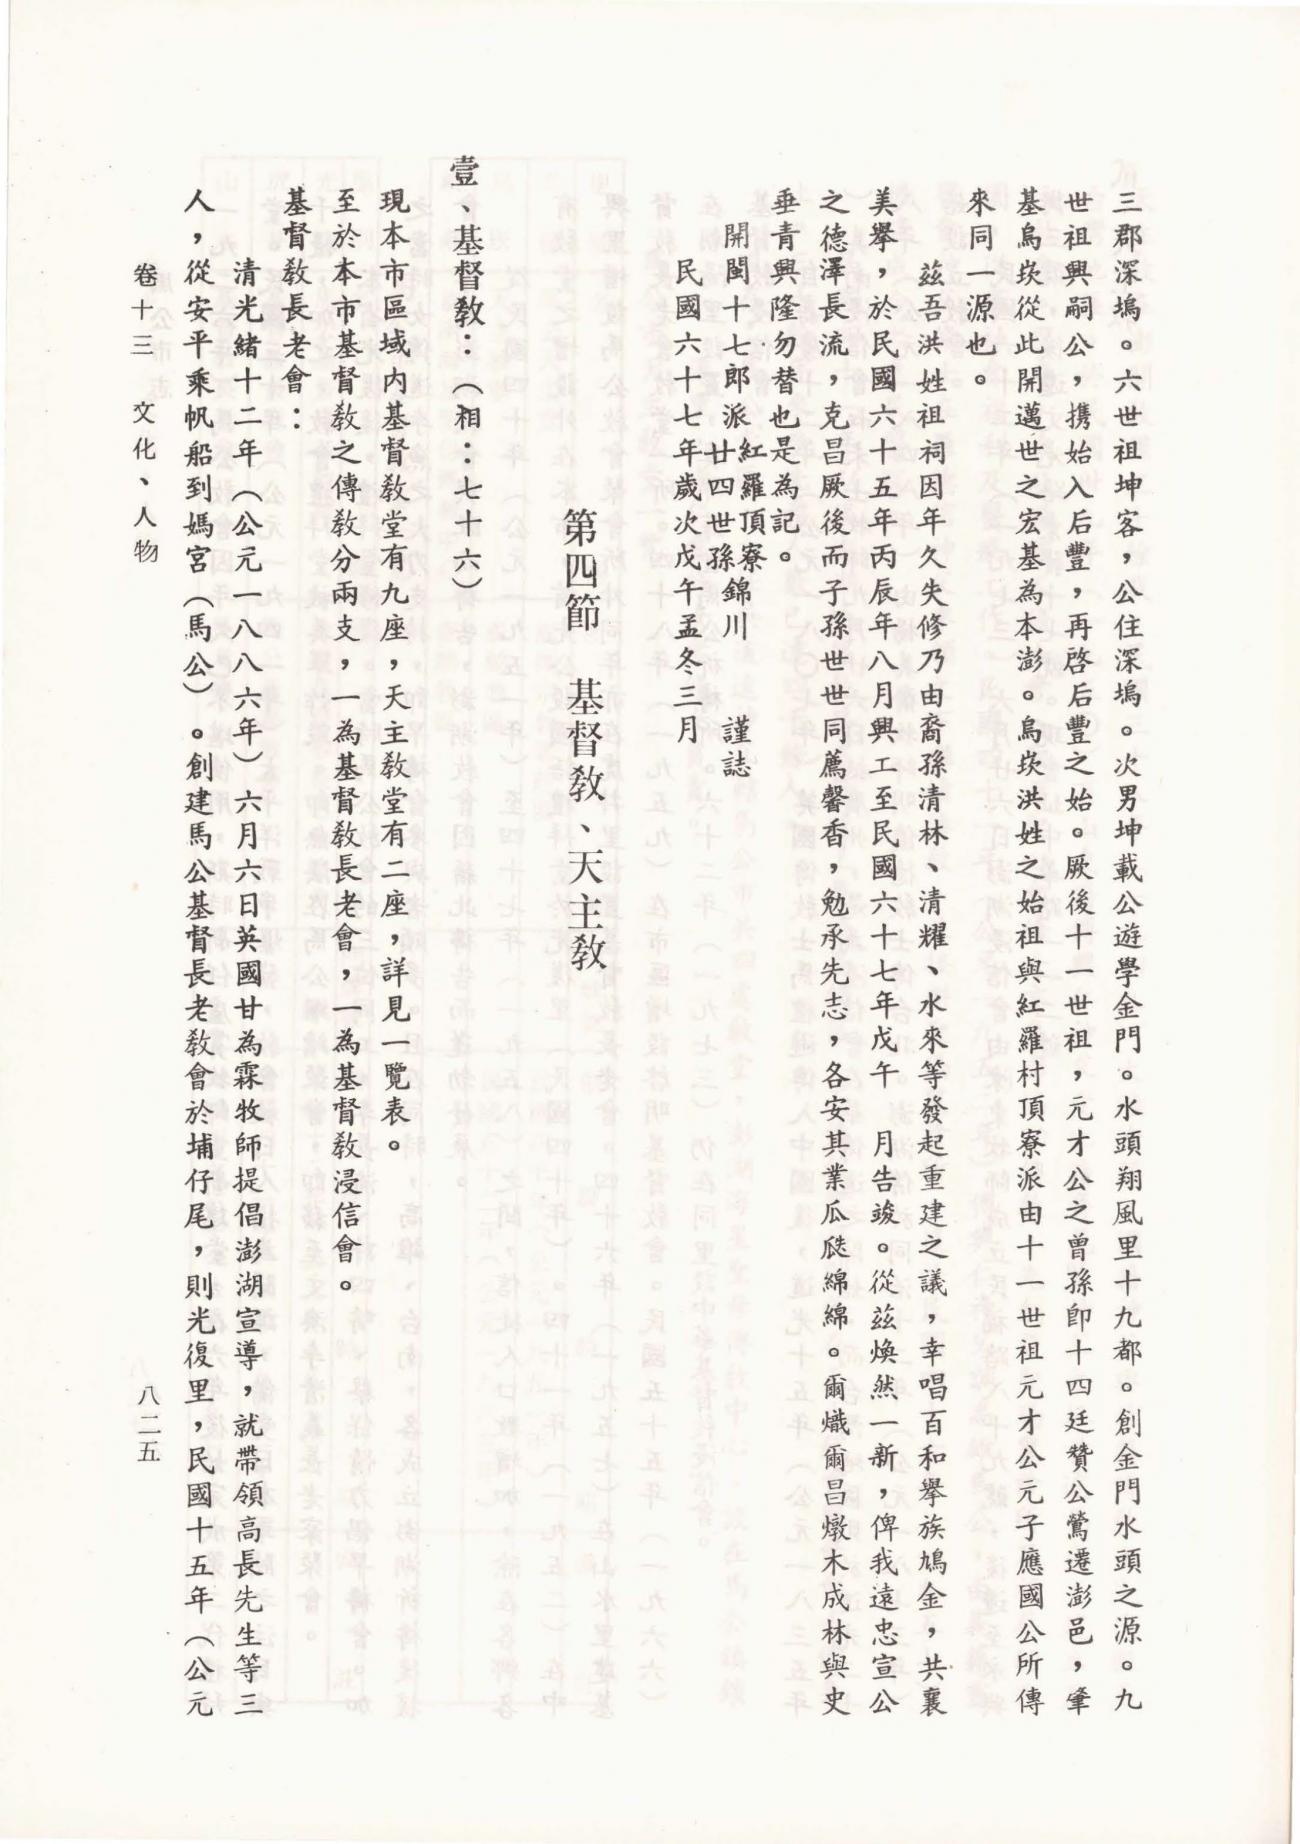 三郡深塢。六世祖坤客，公住深塢。次男坤載公遊學金門。水頭翔風里十九都。創金門水頭之源。九
世祖興嗣公，携始入后豐，再啓后豐之始。厥後十一世祖，元才公之曾孫卽十四廷贊公鶯遷澎邑，肇
基烏崁從此開邁世之宏基為本澎。烏崁洪姓之始祖與紅羅村頂寮派由十一世祖元才公元子應國公所傳
來同一源也。
茲吾洪姓祖祠因年久失修乃由裔孫清林、清耀、水來等發起重建之議，幸唱百和舉族鳩金，共襄
美擧，於民國六十五年丙辰年八月興工至民國六十七年戊午　月告竣。從茲煥然一新，俾我遠忠宣公
之德澤長流，克昌厥後而子孫世世同薦馨香，勉承先志，各安其業瓜瓞綿綿。爾熾爾昌燉木成林與史
垂青興隆勿替也是為記。
開閩十七郎派紅羅頂寮錦川
廿四世孫　謹誌
民國六十七年歲次戊午孟冬三月
第四節　基督敎、天主敎
壹、基督敎：（相：七十六）
現本市區域內基督敎堂有九座，天主敎堂有二座，詳見一覽表。
至於本市基督敎之傳敎分兩支，一為基督敎長老會，一為基督敎浸信會。
基督敎長老會：
清光緒十二年（公元一八八六年）六月六日英國甘為霖牧師提倡澎湖宣導，就帶領高長先生等三
人，從安平乘帆船到媽宮（馬公）。創建馬公基督長老敎會於埔仔尾，則光復里，民國十五年（公元
卷十三　文化、人物
八二五